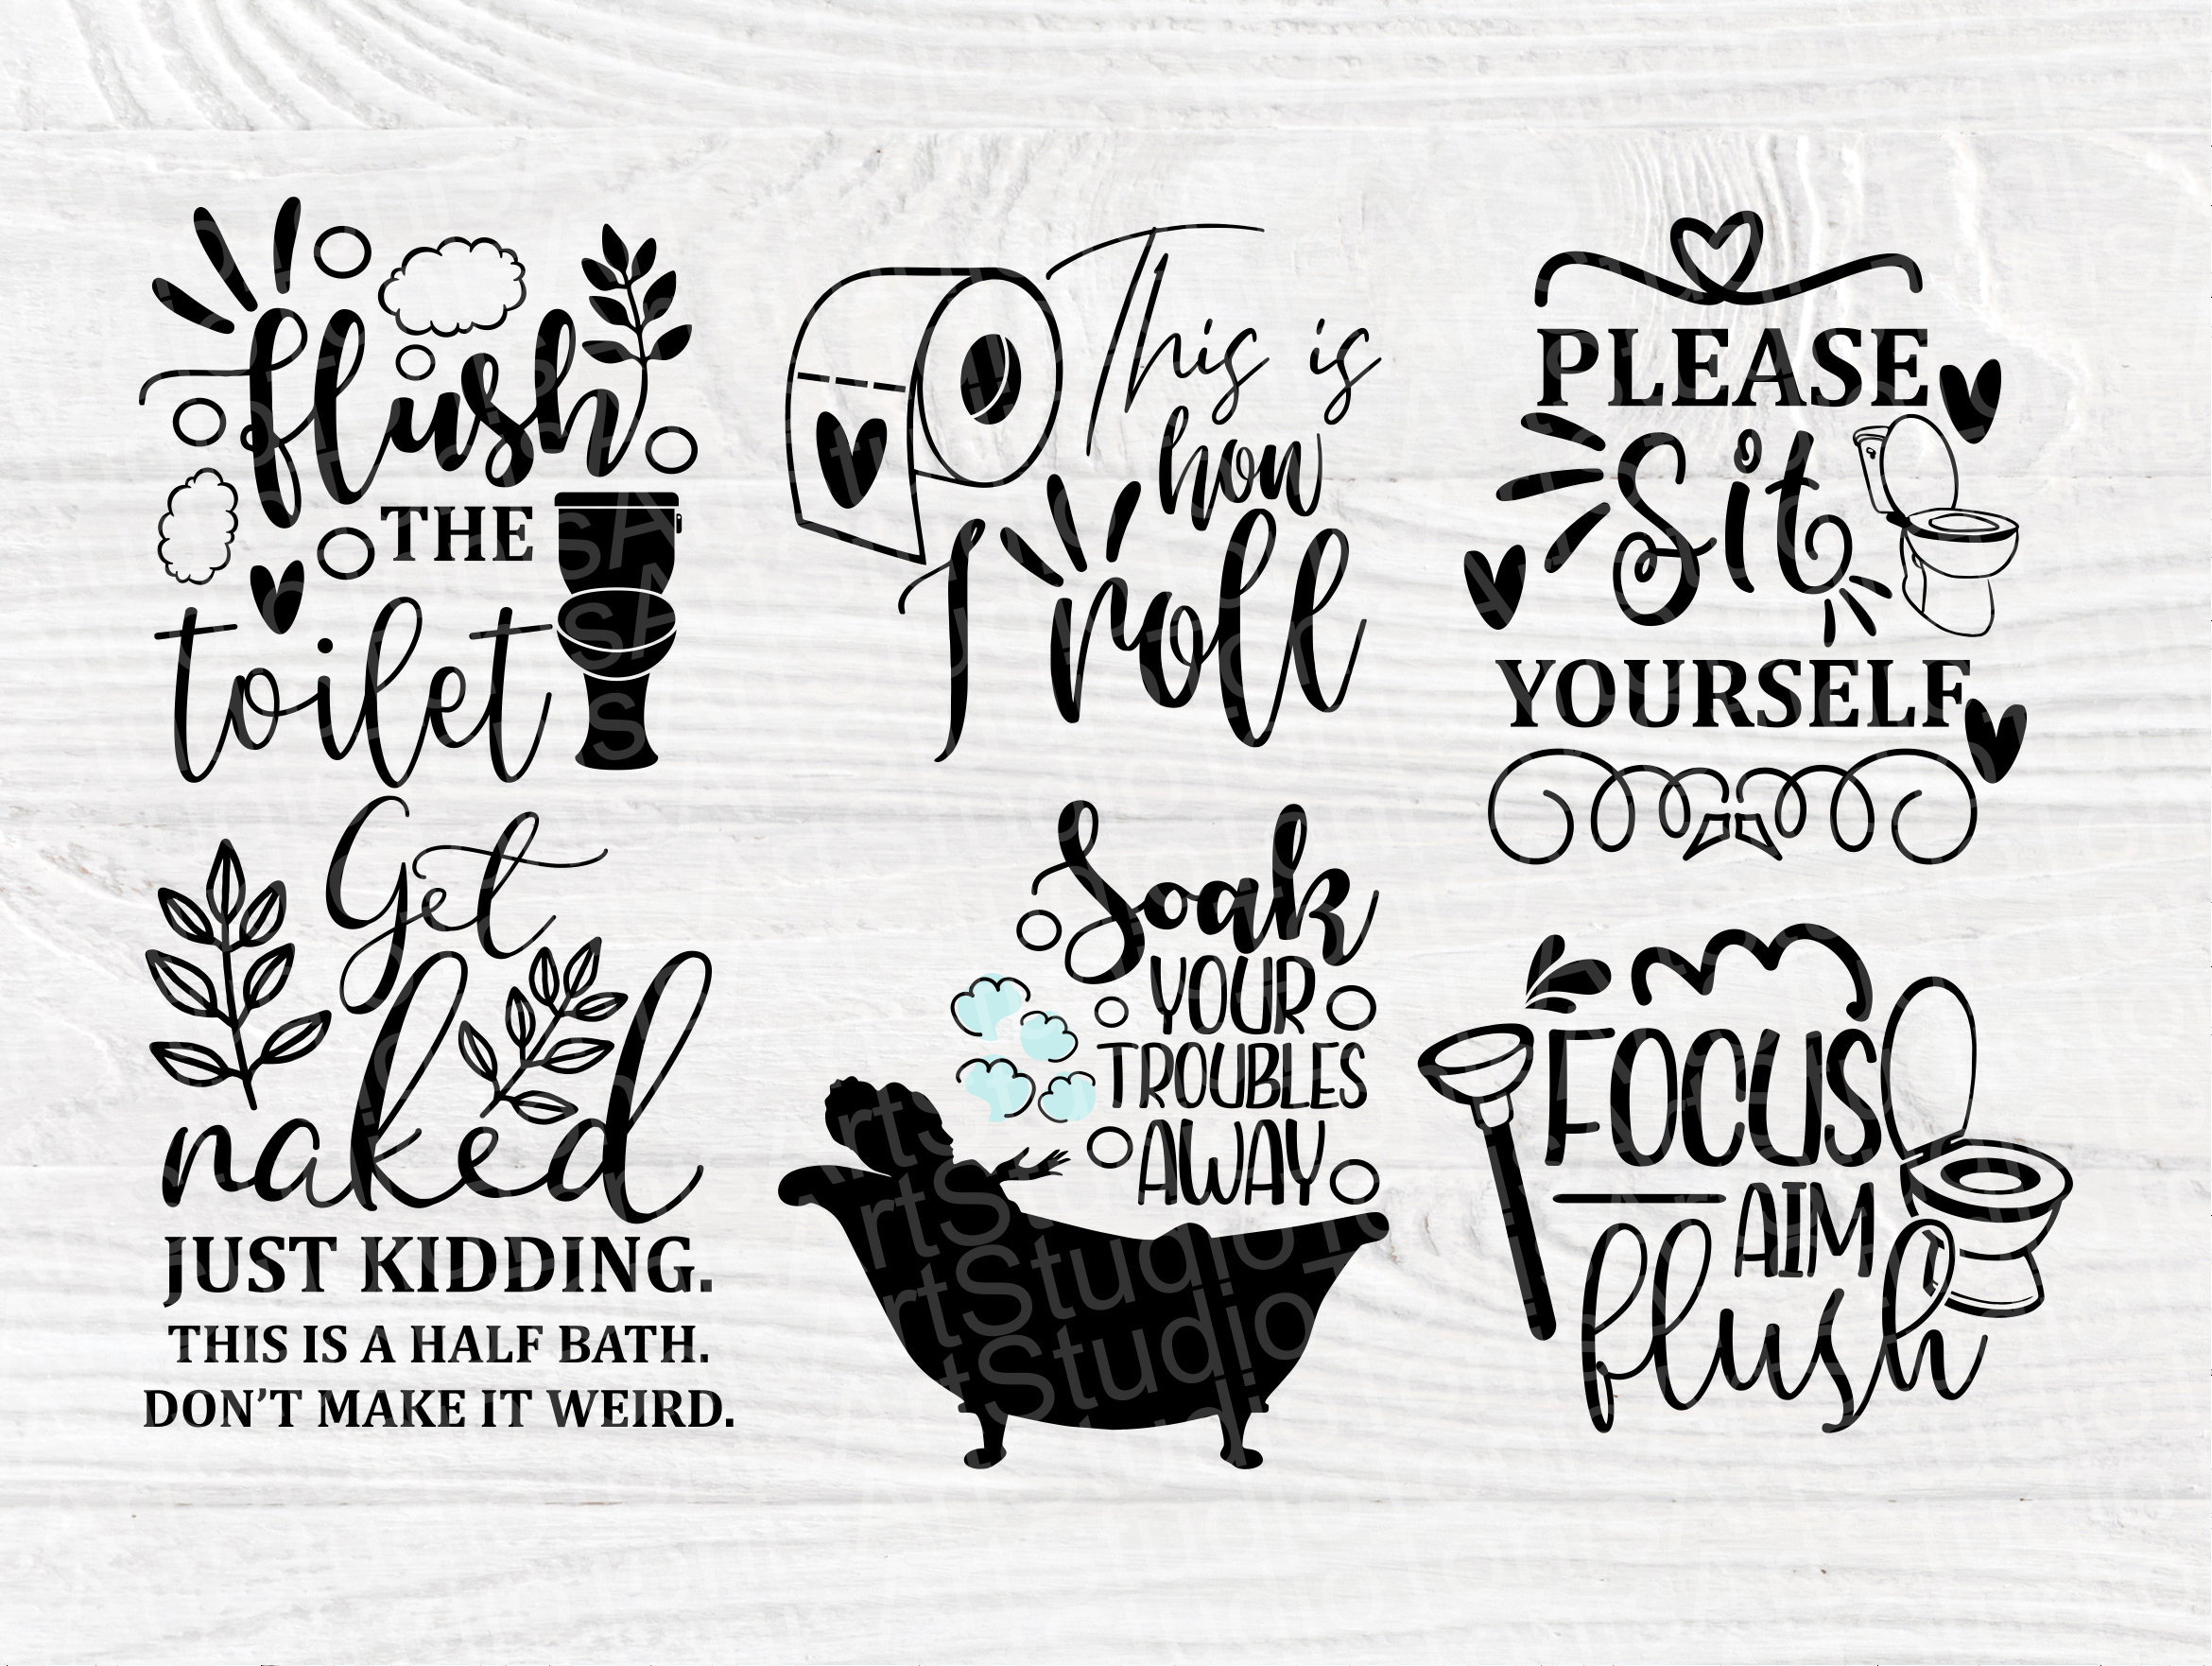 flush
THE
toilet
This is
how
I roll
PLEASE
Sit
YOURSELF
Get
naked
JUST KIDDING.
THIS IS A HALF BATH.
DON'T MAKE IT WEIRD.
Soak
YOUR
TROUBLES
AWAY
FOCUS
AIM
flush
ArtStudio